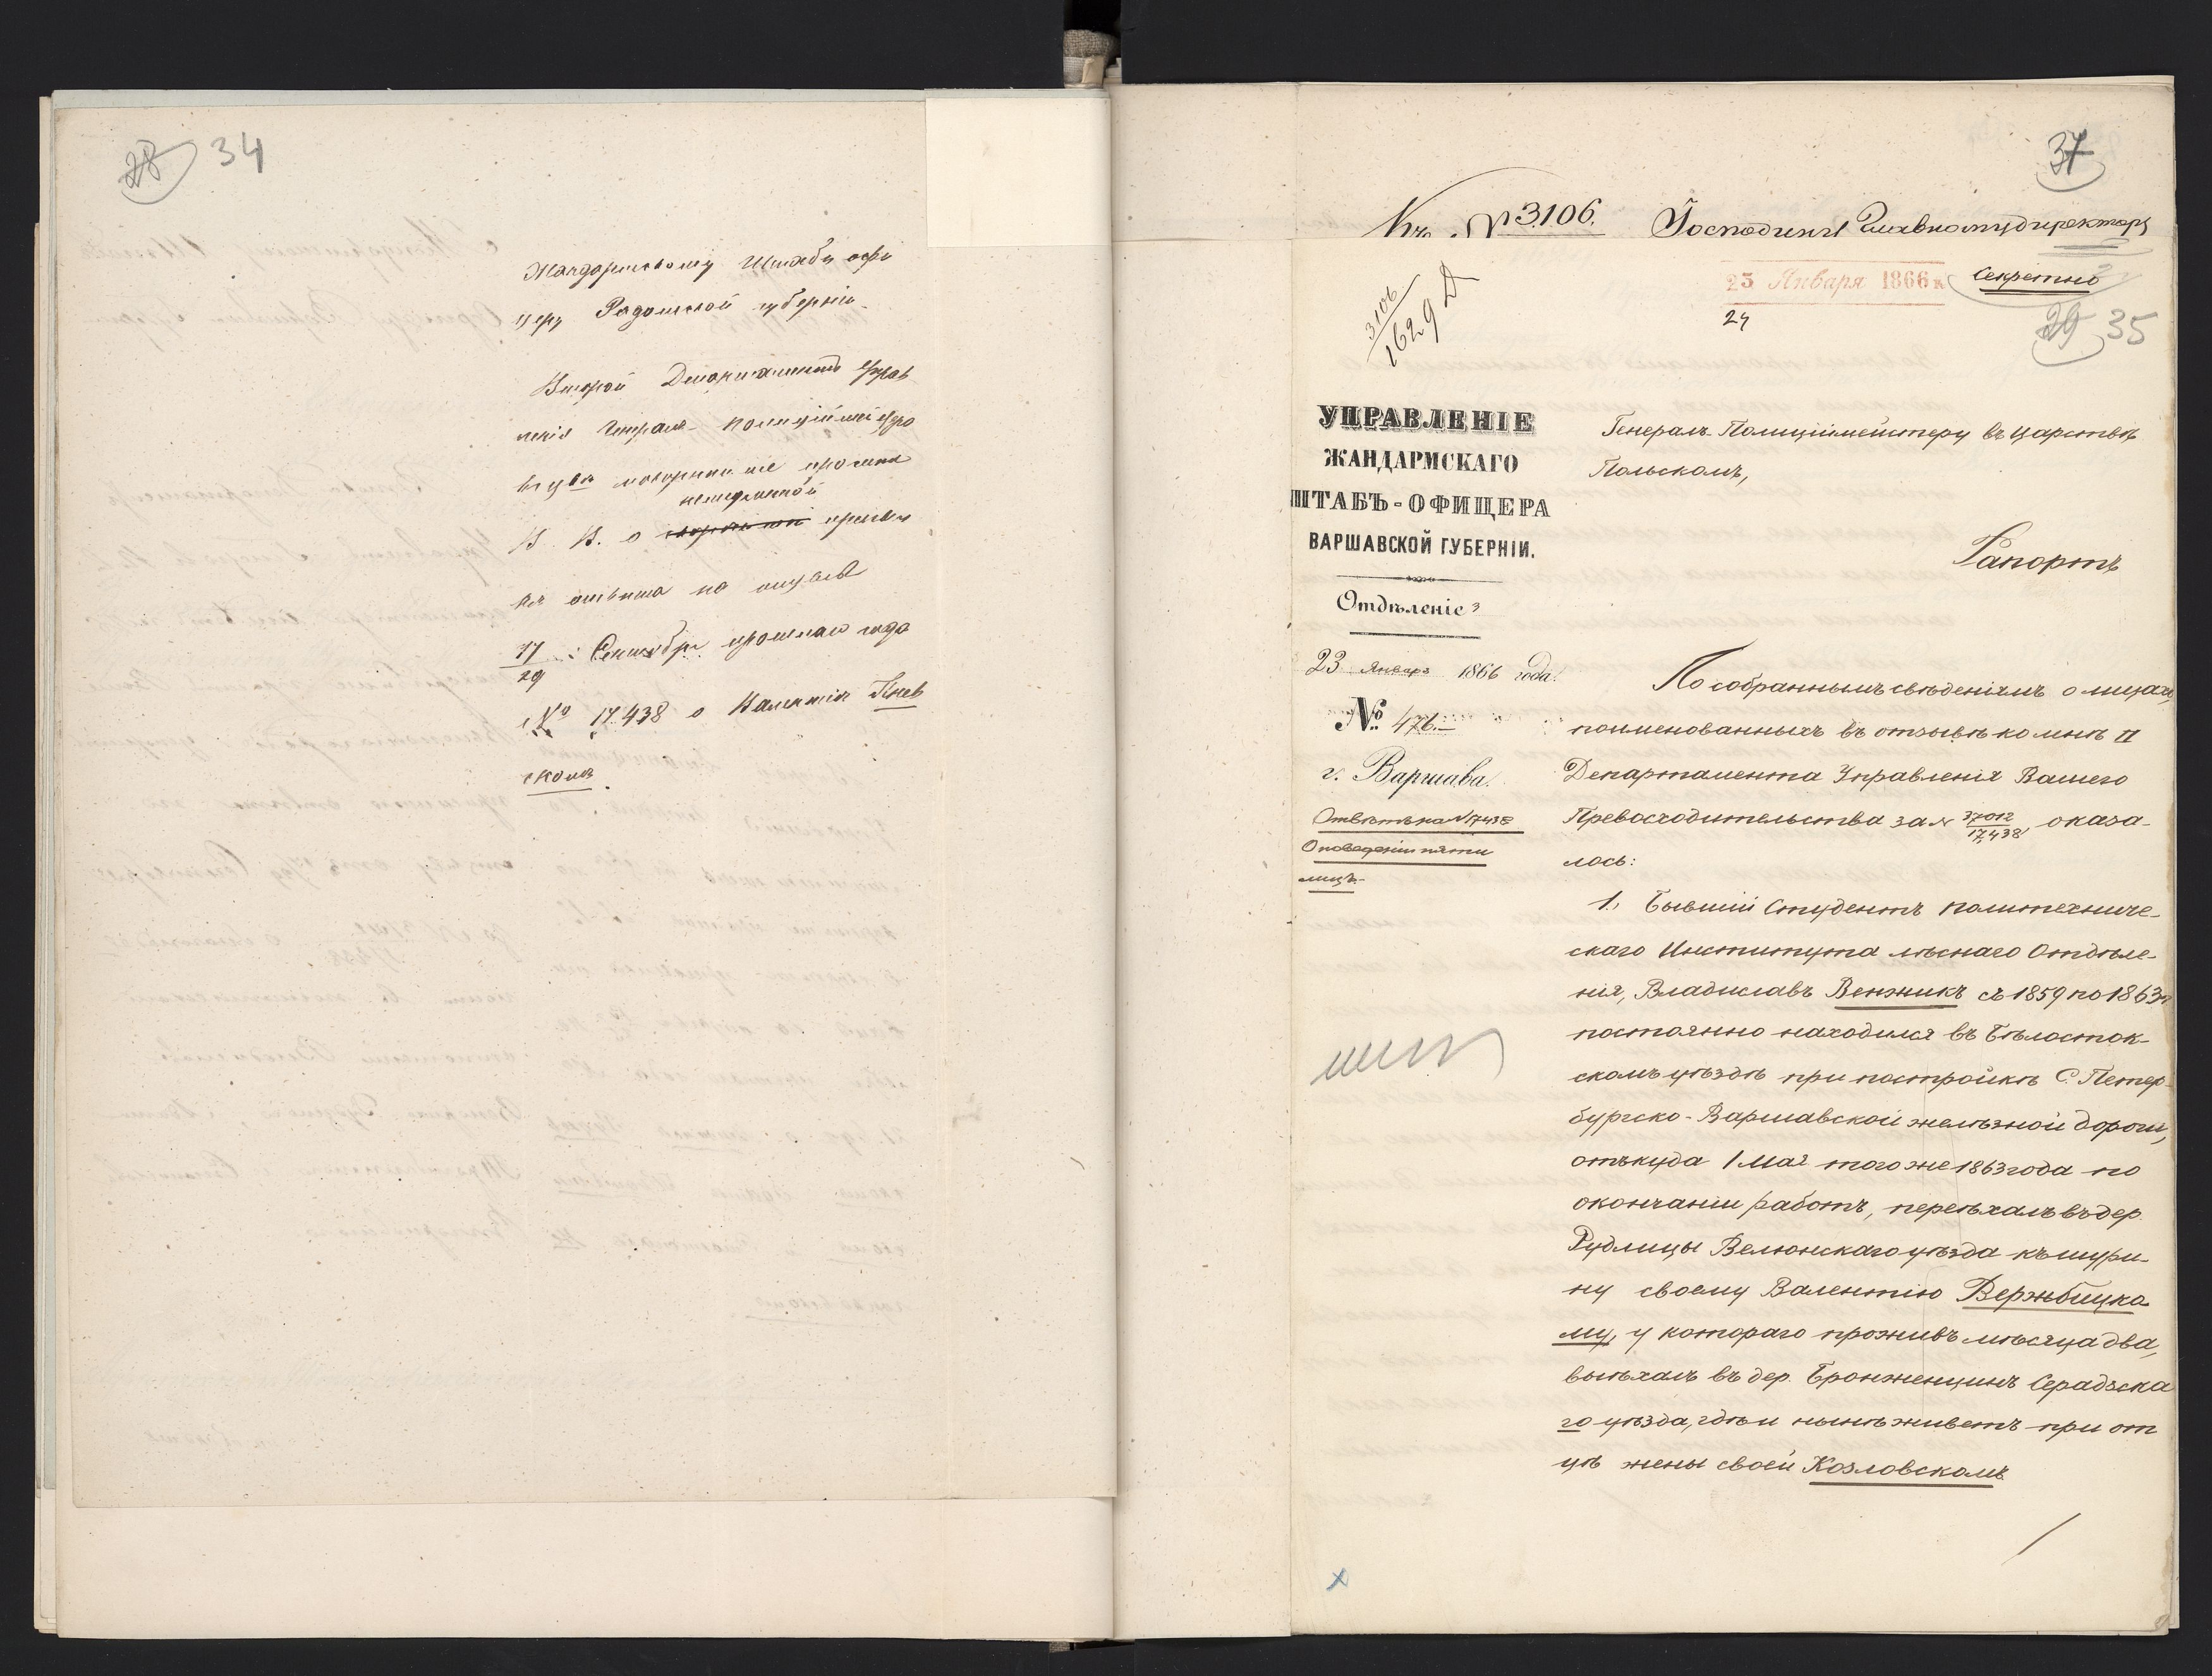 28 34
Жандармскому Штабъ офи
церу Радомской губерніи.
Второй Департаментъ Управ
ленія Генералъ-Полиціймейстера
въ Ц в П покорнѣйше проситъ
немедленной
В. В. о скорѣйшей присыл
кѣ отвѣта на отзывъ
17/29 Сентября прошлаго года
№ 17438 о Валентіи Кнев
скомъ.
37
Къ № 3106. Господину Главномудиректору
23 Января 1866
Секретно
24
29 35
3106/1629 Д
УПРАВЛЕНІЕ
ЖАНДАРМСКАГО
ШТАБЪ-ОФИЦЕРА
ВАРШАВСКОЙ ГУБЕРНІИ.
Отдѣленіе
23 Января 1866 года.
№ 476.
г. Варшава.
Отвѣтъ на № 17438
О поведеніи пяти
лицъ.
Генералъ-Полиціймейстеру въ Царствѣ
Польскомъ,
Рапортъ
По собраннымъ свѣденіямъ о лицахъ,
поименованныхъ въ отзывѣ ко мнѣ II
Департамента Управленія Вашего
Превосходительства за № 37012/17,438, оказа-
лось:
1., Бывшій Студентъ политехниче-
скаго Института лѣснаго Отдѣле-
нія, Владиславъ Венжикъ съ 1859 по 1863 г.
постоянно находился въ Бѣлосток-
скомъ уѣздѣ при постройкѣ С. Петер-
бургско-Варшавской желѣзной дороги,
отъкуда 1 Мая того же 1863 года по
окончаніи работъ, переѣхалъ въ дер.
Рудлицы Велюнскаго уѣзда къ шури-
ну своему Валентію Вержбицко
му, у котораго проживъ мѣсяца два,
выѣхалъ въ дер. Бронженцинъ Серадзска
го уѣзда, гдѣ и нынѣ живетъ при от
цѣ жены своей Козловскомъ